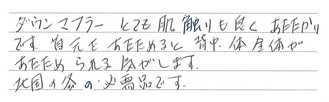 ダウンマフラー とても肌触りも良く あたたかり
です。首元をあたためると 背中、体全体が
あたため られる気がします。
北国の冬の必需品です。